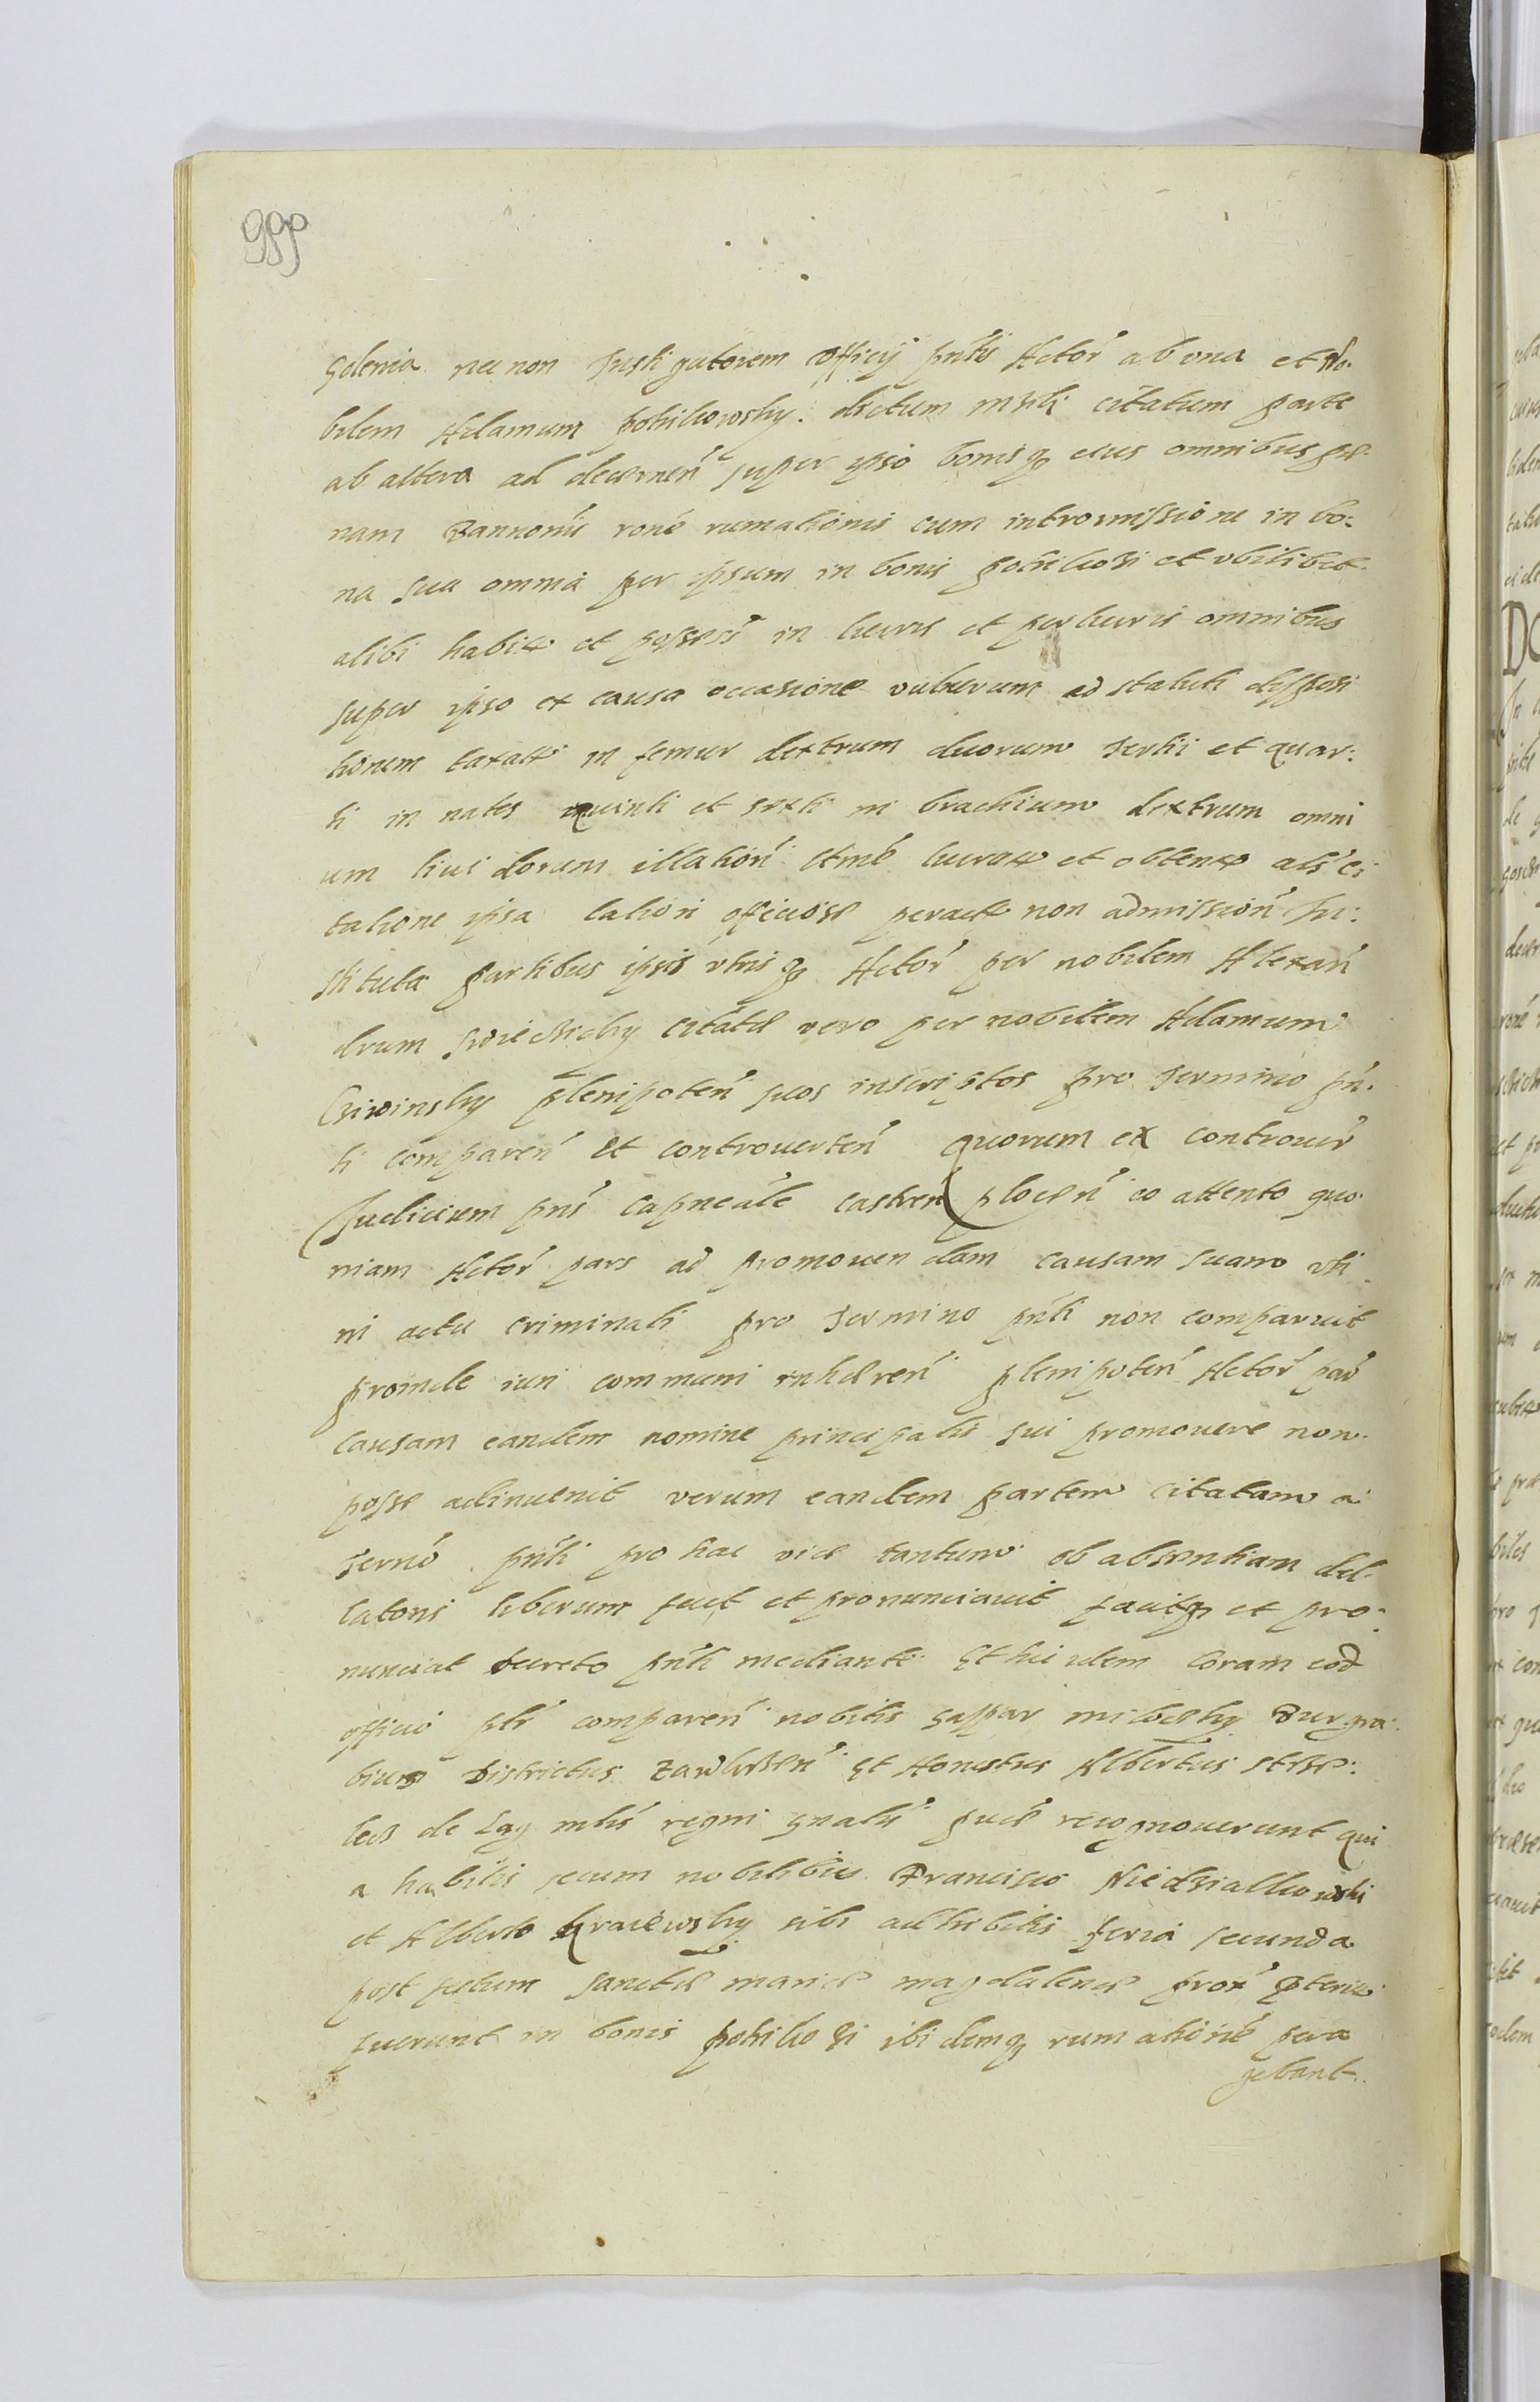 999
Golenia nec non Instigatorem Officij pntis Actor ab vna et No.
bilem Adamum potrikowsky. dictum msti citatum parte
ab altera ad decernen super ipso bonisq eius omnibus poe-
nam Bannonis rone rumationis cum intromissione in bo:
na sua omnia per ipsum in bonis et vbilibet
alibi habit et possess in lucris et perlucris omnibus
super ipso ex causa occasione vulnerum ad statuti disposi
tionem taxatt in femur dextrum duorum Tertii et quar:
ti in nates quinti et sexti in brachium dextrum omni
um liuidorum illation ltime lucrat et obtent als ci
tatione ipsa lationi officiose peractt non admission In:
stituta partibus ipsis vtrisq Actor per nobilem Alexan
drum citatae vero per nobilem Adamum
Cziwinsky plenipoten suos inscriptos pro Termino pn.
ti comparen et controuerten quorum ex controuer
Judicium pns Capneale castren plocen eo attento quo
niam Actor pars ad promouendam causam suam vti
ni actu criminali pro Termino pnti non comparuit
proinde iuri communi inhaeren plenipoten Actor par
causam eandem nomine principalis sui promouere non.
posse adinuenit verum eandem partem citatam a
Termo pnti pro hac vice tantum ob absentiam del-
latoris liberum fecit et pronunciauit facitq et pro:
nunciat Decreto pnti mediante. Et hic idem Coram eod
officio pls comparen nobilis Gaspar miloesky Burgra.
bius Districtus Zawkrzen Et Honestus Albertus
de Lag mtis regni gnalis quae recognouerunt qui
a habitis secum nobilibus Francisco Niedzialkowski
et Alberto Kraiewsky sibi adhibitis feria secunda
post festum Sanctae mariae magdalenae prox pterit
fuerunt in bonis ibidemq rumatione pera
gebant.